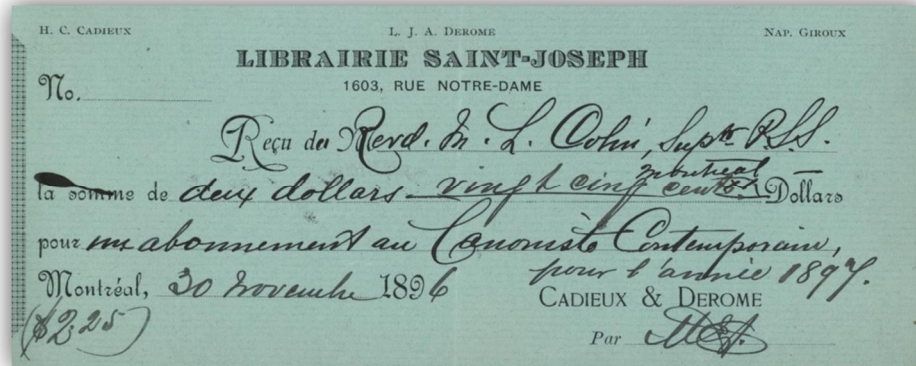 H. C. CADIEUX L. J. A. DEROME NAP. GIROUX
LIBRAIRIE SAINT-JOSEPH
1603, RUE NOTRE-DAME
No.
Reçu du Revd. M. L. Colin, Supr P.S.S.
Montréal
la somme de deux dollars vingt cinq cents Dollars
pour un abonnement au Canoniste Contemporain,
pour l'année 1897.
Montréal, 30 Novembre 1896
CADIEUX & DEROME
($2,25)
Par